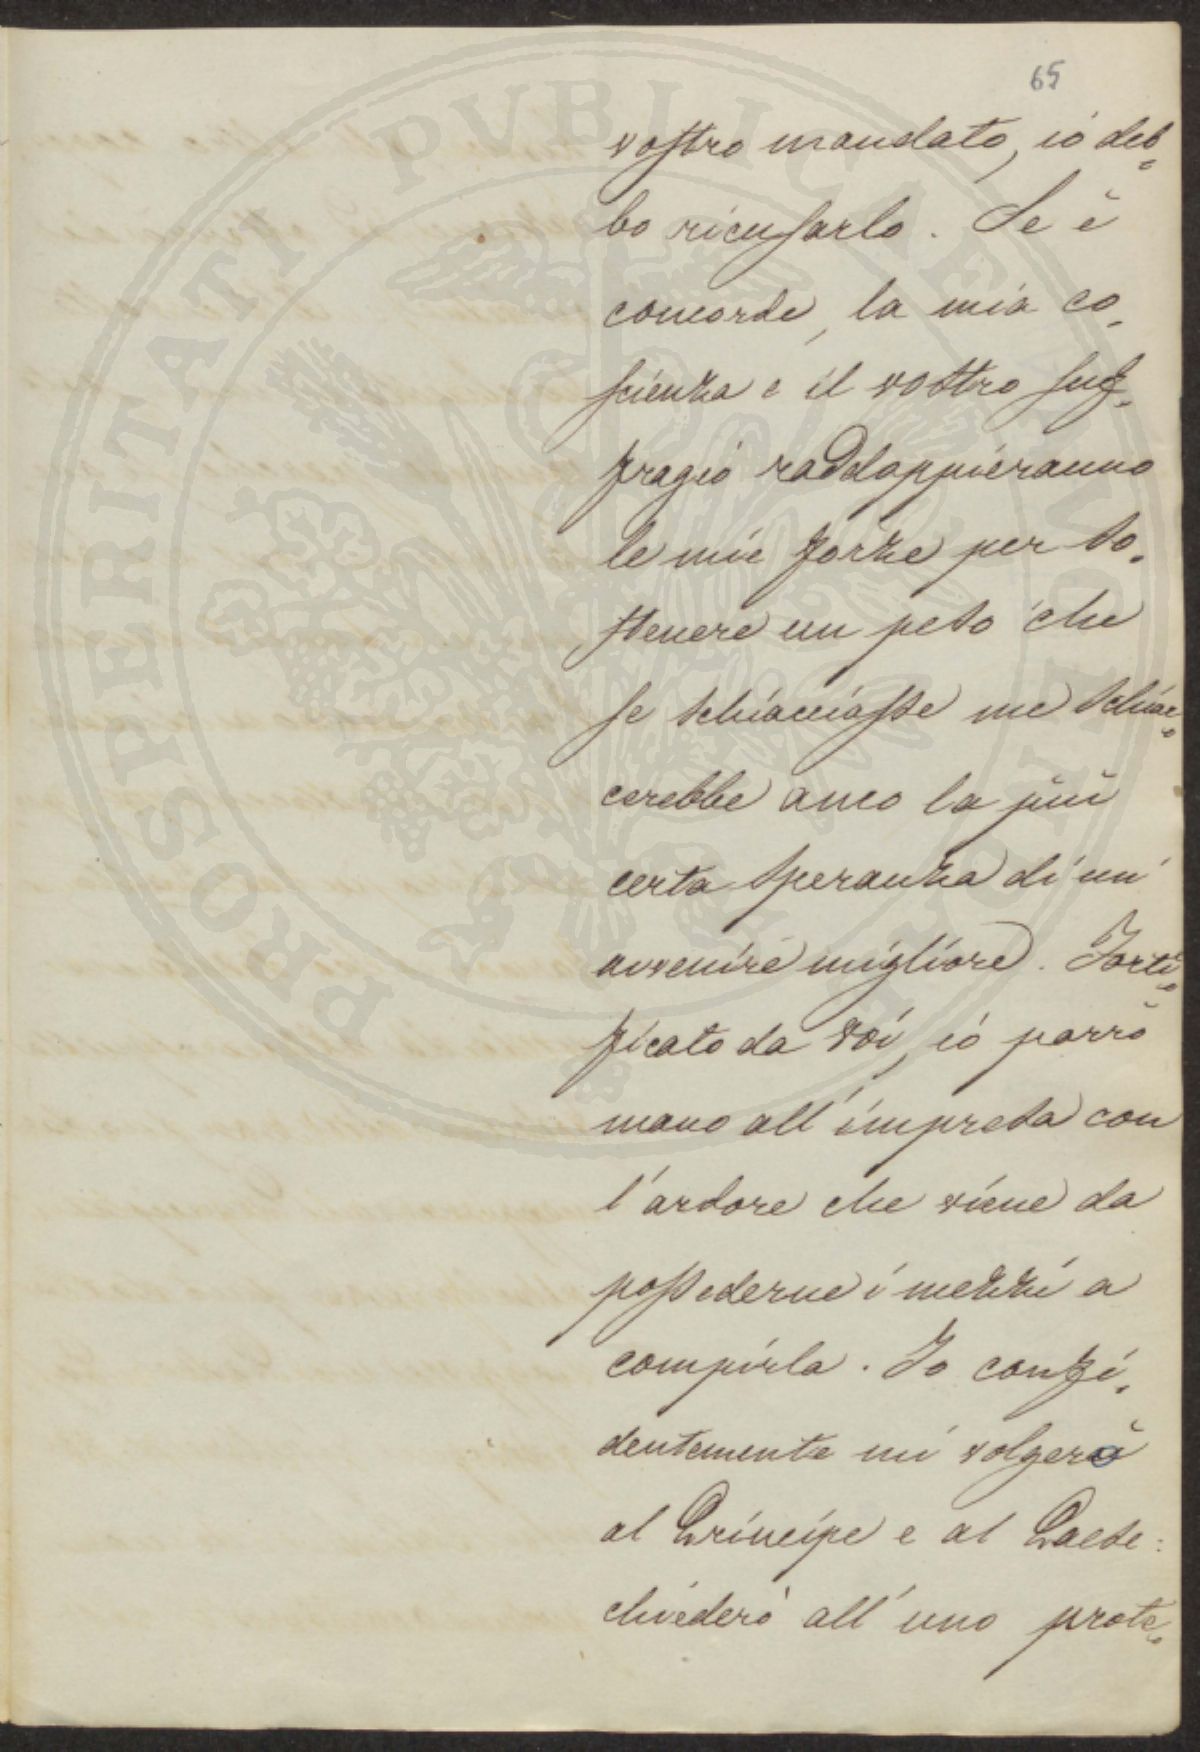 65
vostro mandato, io deb-
bo ricusarlo. Se è
concorde, la mia co-
scienza e il vostro suf-
fragio raddoppieranno
le mie forze per so-
stenere un peso che
se schiacciasse me schiac-
cerebbe anco la più
certa speranza di un'
avvenire migliore. Forti-
ficato da voi, io porrò
mano all'impresa con
l'ardore che viene da
possederne i mezzi a
compirla. Io confi-
dentemente mi volgerò
al Principe e al Paese:
chiederò all'uno prote-
PROSPERITATI PVBLICAE